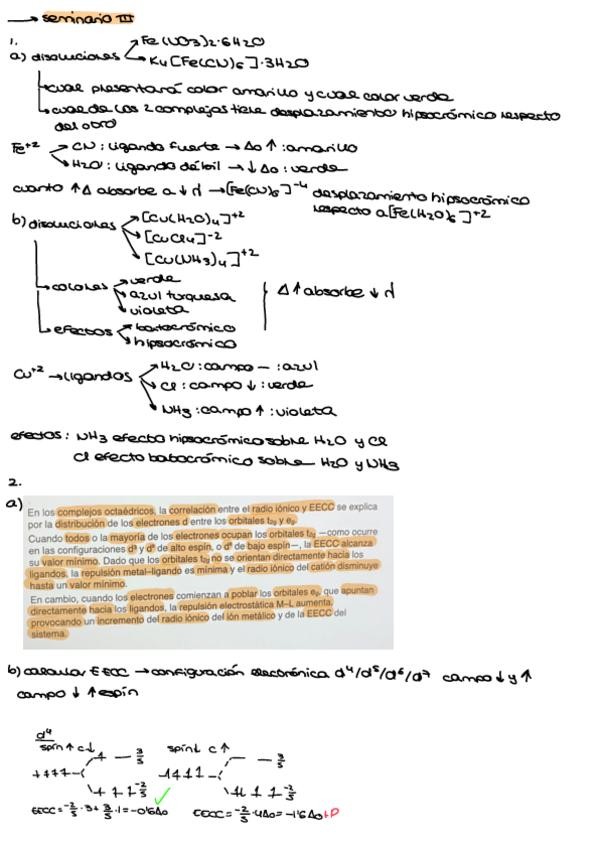 → seminario III
1.
a) disoluciones Fe(NO3)2·6H2O
K4[Fe(CN)6]·3H2O
cual presentará color amarillo y cual color verde
cual de los 2 complejos tiene desplazamiento hipsocrómico respecto
del otro
Fe+2 CN: ligando fuerte → Δo ↑ : amarillo
H2O: ligando débil → ↓ Δo : verde
cuanto ↑ Δ absorbe a ↓ λ → [Fe(CN)6]-4 desplazamiento hipsocrómico
respecto a [Fe(H2O)6]+2
b) disoluciones [Cu(H2O)4]+2
[CuCl4]-2
[Cu(NH3)4]+2
colores verde
azul turquesa
violeta
Δ ↑ absorbe ↓ λ
efectos batocrómico
hipsocrómico
Cu+2 → ligandos H2O: campo – : azul
Cl: campo ↓ : verde
NH3: campo ↑ : violeta
efectos: NH3 efecto hipsocrómico sobre H2O y Cl
Cl efecto batocrómico sobre H2O y NH3
2.
a)
En los complejos octaédricos, la correlación entre el radio iónico y EECC se explica
por la distribución de los electrones d entre los orbitales t2g y eg.
Cuando todos o la mayoría de los electrones ocupan los orbitales t2g —como ocurre
en las configuraciones d³ y d⁸ de alto espín, o d⁶ de bajo espín—, la EECC alcanza
su valor mínimo. Dado que los orbitales t2g no se orientan directamente hacia los
ligandos, la repulsión metal–ligando es mínima y el radio iónico del catión disminuye
hasta un valor mínimo.
En cambio, cuando los electrones comienzan a poblar los orbitales eg, que apuntan
directamente hacia los ligandos, la repulsión electrostática M–L aumenta,
provocando un incremento del radio iónico del ión metálico y de la EECC del
sistema.
b) calcular EECC → configuración electrónica d4/d5/d6/d7 campo ↓ y ↑
campo ↓ ↑ espín
d4
spin ↑ c↓ 3/5 spin↓ c↑ 3/5
-2/5 -2/5
EECC = -2/5 · 3 + 3/5 · 1 = -0'6Δo EECC = -2/5 · 4Δo = -1'6Δo+P